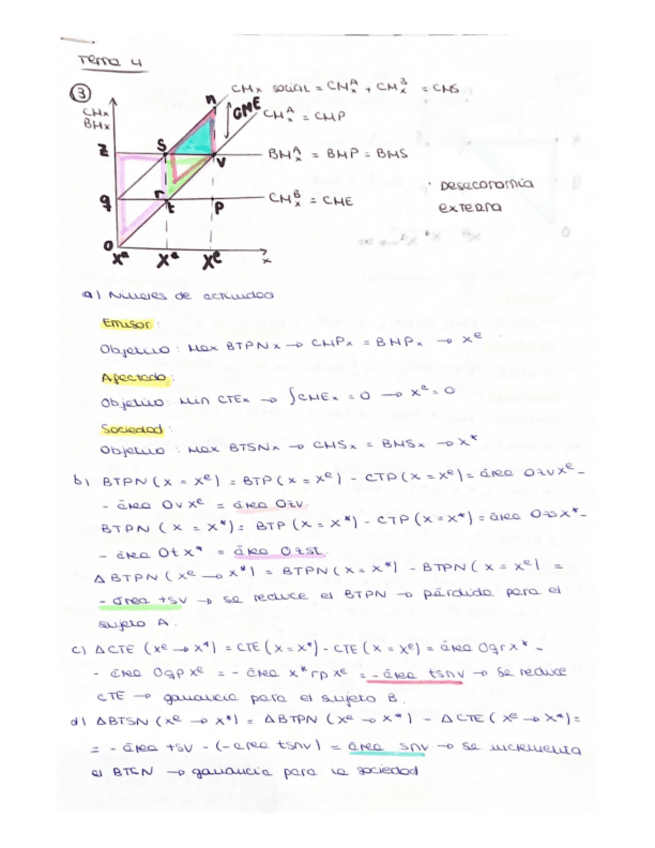 Tema 4
③
CMx
BMx
CMx social = CMxᴬ + CMxᴮ = CMS
n
CME
CMxᴬ = CMP
z
s
v
BMxᴬ = BMP = BMS
q
r
t
p
CMxᴮ = CME
· Deseconomía
externa
0
xᵃ
x*
xᵉ
x
a) Niveles de actividad
Emisor:
Objetivo: Max BTPNx → CMPx = BMPx → xᵉ
Afectado:
Objetivo: Min CTEx → ∫CMEx = 0 → xᵃ = 0
Sociedad:
Objetivo: Max BTSNx → CMSx = BMSx → x*
b) BTPN (x = xᵉ) = BTP (x = xᵉ) - CTP (x = xᵉ) = área 0zvxᵉ -
- área 0vxᵉ = área 0zv
BTPN (x = x*) = BTP (x = x*) - CTP (x = x*) = área 0zsx* -
- área 0tx* = área 0zst
ΔBTPN (xᵉ → x*) = BTPN (x = x*) - BTPN (x = xᵉ) =
- área tsv → se reduce el BTPN → pérdida para el
sujeto A.
c) ΔCTE (xᵉ → x*) = CTE (x = x*) - CTE (x = xᵉ) = área 0qrx* -
- área 0qpxᵉ = - área x*rpxᵉ = - área tsnv → se reduce
CTE → ganancia para el sujeto B.
d) ΔBTSN (xᵉ → x*) = ΔBTPN (xᵉ → x*) - ΔCTE (xᵉ → x*) =
= - área tsv - (- área tsnv) = área snv → se incrementa
el BTSN → ganancia para la sociedad